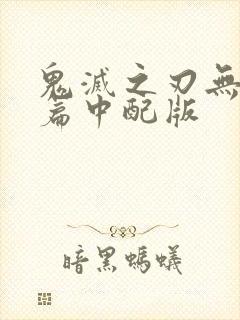 鬼滅之刃無
篇中配版
暗黑螞蟻